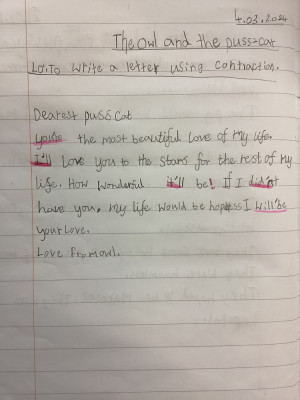 4.03.2024
The owl and the puss-cat
LO.To write a letter using contraction.
Dearest puss cat
you're the most beautiful love of my life.
I'll love you to the stars for the rest of my
life. How wonderful it'll be! If I didn't
have you, my life would be hopless I will'be
your love.
Love from owl.